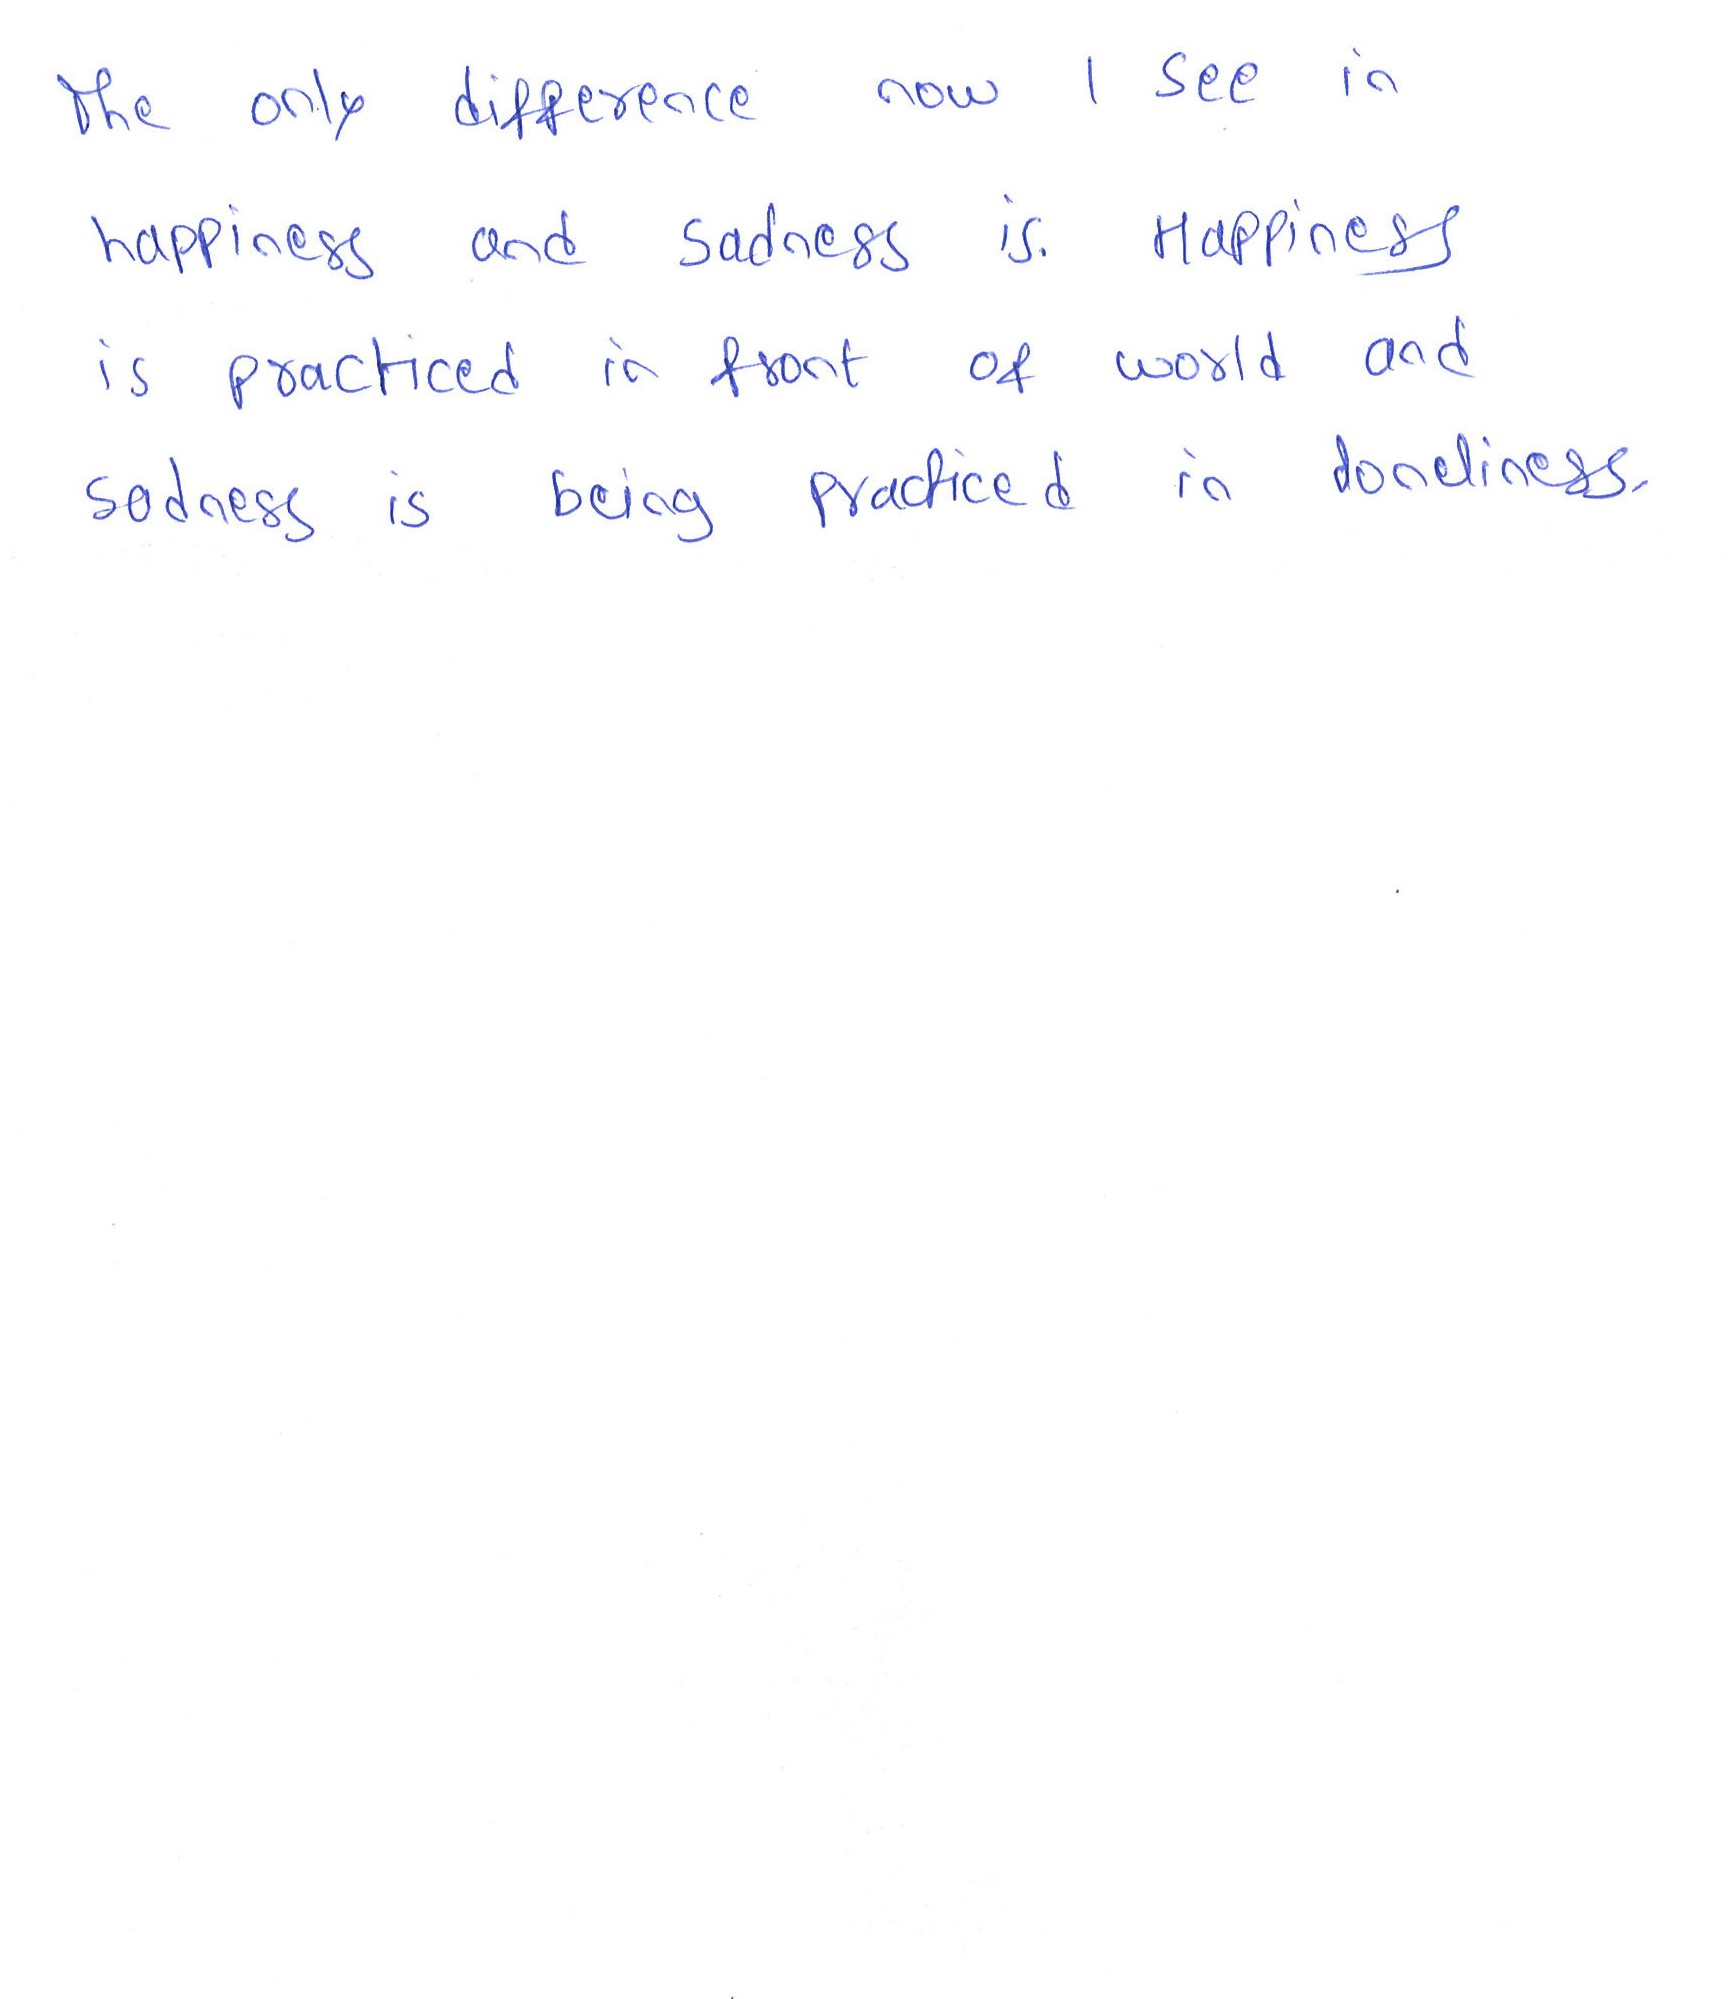 The only difference now I see in
happiness and sadness is. Happiness
is practiced in front of world and
sadness is being practiced in loneliness.